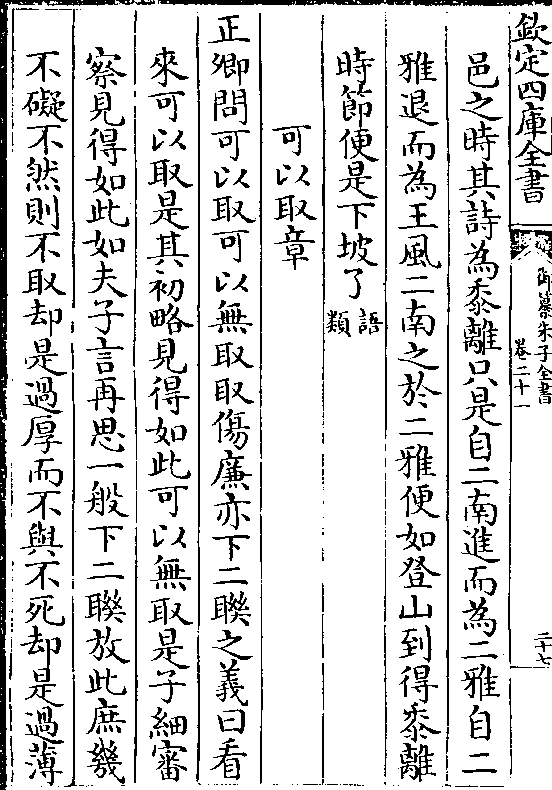 欽定四庫全書
御纂朱子全書
卷二十一
二十七
邑之時其詩為黍離只是自二南進而為二雅自二
雅退而為王風二南之於二雅便如登山到得黍離
時節便是下坡了語類
可以取章
正卿問可以取可以無取取傷廉亦下二聨之義曰看
來可以取是其初略見得如此可以無取是子細審
察見得如此如夫子言再思一般下二聨放此庶幾
不礙不然則不取却是過厚而不與不死却是過薄